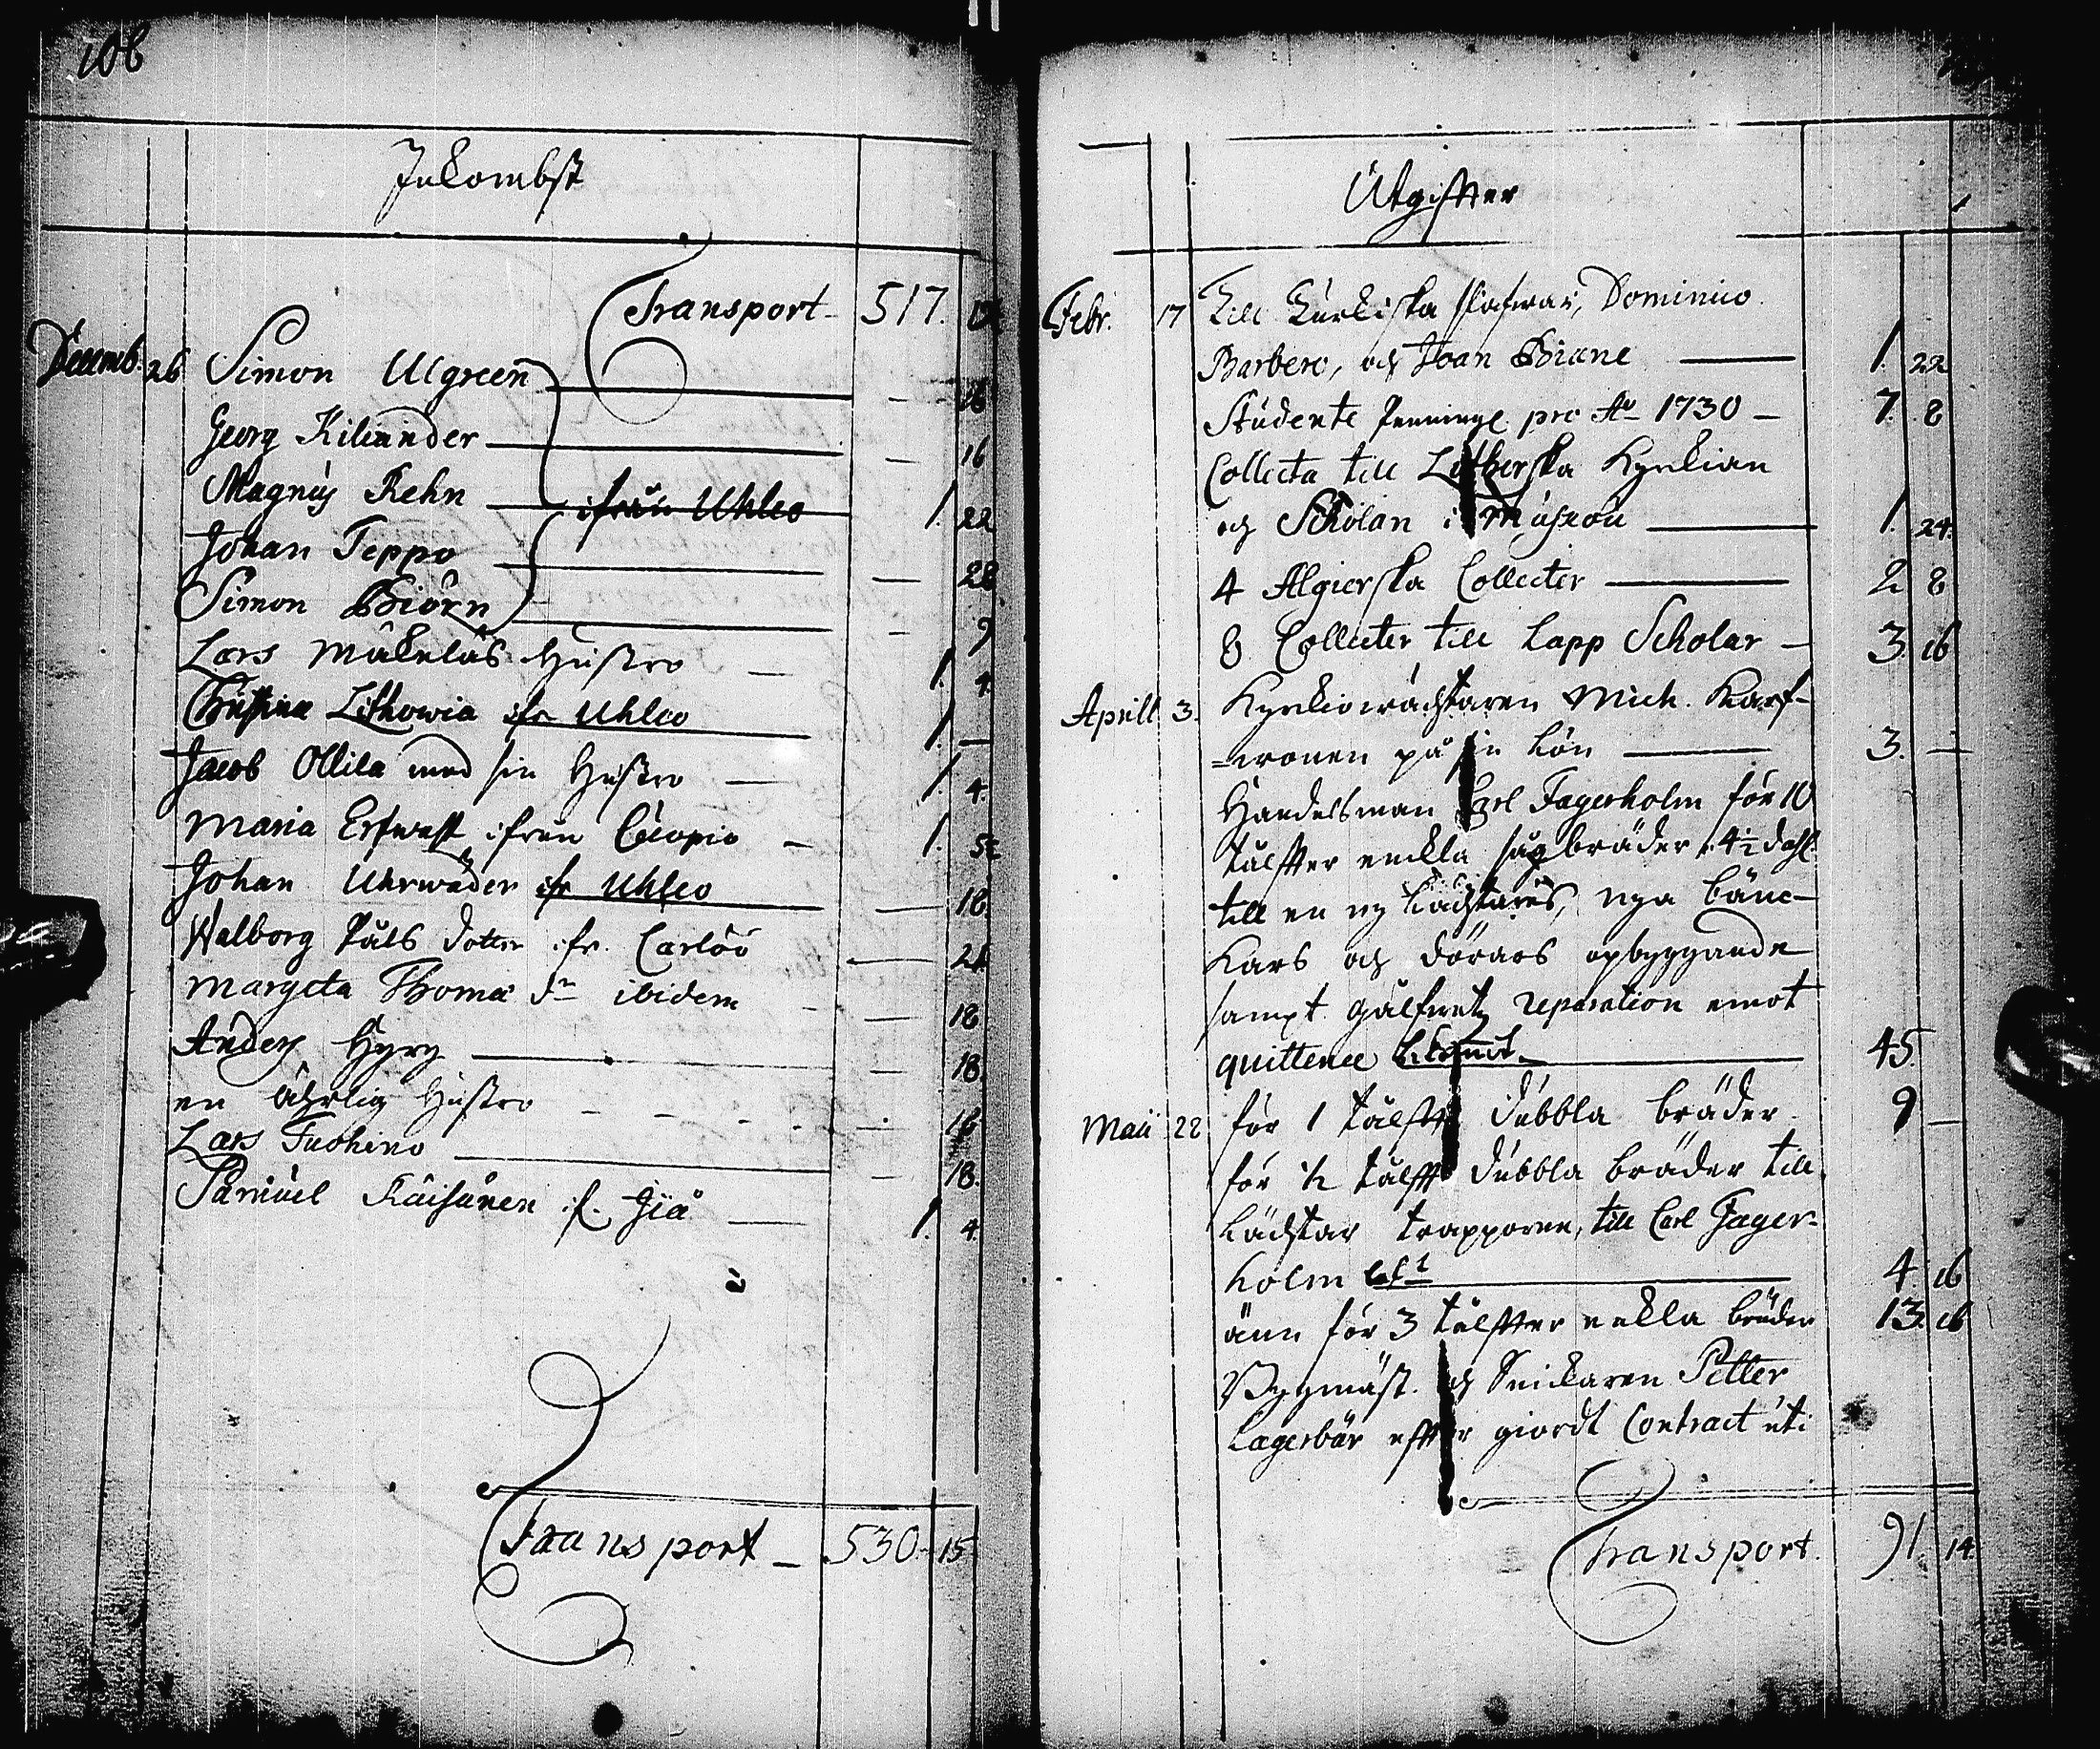 106
Inkombst
Transport 517.
Decemb. 26 Simon Ulgreen — 16
Georg Kiliander — 16
Magnus Rehn — ifrån Uhleo 1. 22
Johan Teppo — 28
Simon Biörn — 9
Lars Mäkeläs Hustro — 1. 4.
Christina Lithowia ifr Uhleo 1. —
Jacob Ollila med sin Hustro — 1. 4.
Maria ifrån Cuopio — 1.
Johan Uhrwäder ifr Uhleo — 18.
Walborg Påls dotter ifr. Carlöö — 24
Margeta Thomæ dr ibidem — 18
Anders Hyry — 18.
en ährlig Hustro — 16
Lars Tuohino — 18.
Samuel Käisänen if. Giä — 1. 4.
Transport — 530. 15
Utgiffter
Febr. 17 Till Turkiska slafwar, Dominico
Barbero, och Joan Biane — 1. 22
Studente Penninge pro Ao 1730 — 7. 8
Collecta till Lutherska Kyrkian
och Scholan i Muscou — 1. 24.
4 Algierska Collecter — 2 8
8 Collecter till Lapp Scholar — 3. 16
Aprill 3. Kyrkiowächtaren Mich. Karf-
=wonen på sin Lön — 3. —
Handelsman Carl Fagerholm för 10
tålffter enckla sågbräder à 4½ dahl.
till en ny Lächtares, nya bänc-
kars och dörars opbyggande
sampt gålfwetz reparation emot
quittence — 45.
Maii 22 för 1 tålfft dubbla bräder 9 —
för ½ tålfft dubbla bräder till
Lächtar trapporne, till Carl Fager-
holm — 4. 16
änn för 3 tålffter enckla bräder 13. 16
Byggmäst. och Snickaren Petter
Lagerbär effter giordt Contract uti
Transport. 91. 14.